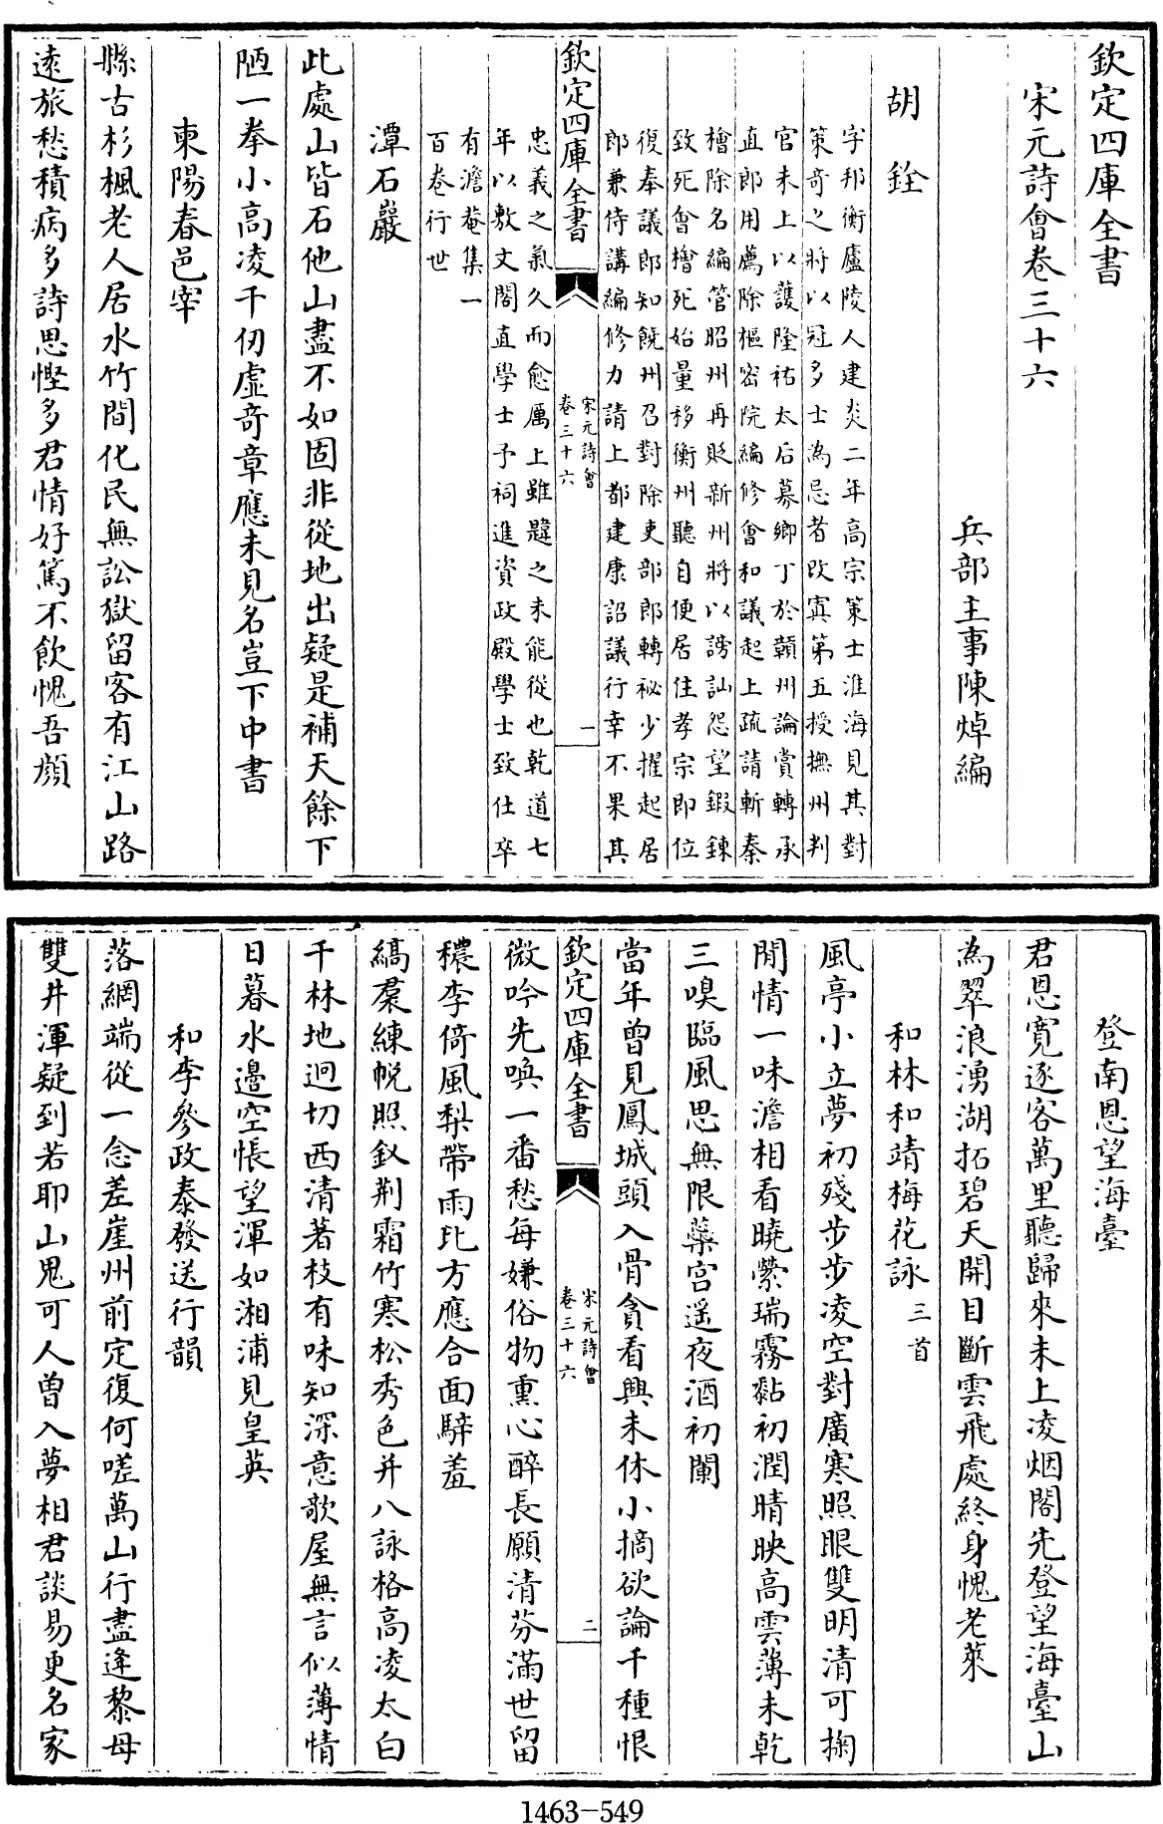 欽定四庫全書
宋元詩會卷三十六
兵部主事陳焯編
胡銓
字邦衡廬陵人建炎二年高宗策士淮海見其對
策奇之將以冠多士為忌者改寘第五授撫州判
官未上以護隆祐太后募鄉丁於贑州論賞轉承
直郎用薦除樞密院編修會和議起上疏請斬秦
檜除名編管昭州再貶新州將以謗訕怨望鍜鍊
致死會檜死始量移衡州聽自便居住孝宗即位
復奉議郎知饒州召對除吏部郎轉秘少擢起居
郎兼侍講編修力請上都建康詔議行幸不果其
欽定四庫全書
宋元詩會
卷三十六
一
忠義之氣久而愈厲上雖韙之未能從也乾道七
年以敷文閣直學士予祠進資政殿學士致仕卒
有澹菴集一
百卷行世
潭石巖
此處山皆石他山盡不如固非從地出疑是補天餘下
陋一拳小高凌千仞虛奇章應未見名豈下中書
東陽春邑宰
縣古杉楓老人居水竹間化民無訟獄留客有江山路
遠旅愁積病多詩思慳多君情好篤不飲愧吾顏
登南恩望海臺
君恩寛逐客萬里聽歸來未上凌烟閣先登望海臺山
為翠浪湧湖拓碧天開目斷雲飛處終身愧老萊
和林和靖梅花詠三首
風亭小立夢初殘步步凌空對廣寒照眼雙明清可掬
閒情一味澹相看曉縈瑞霧黏初潤晴映高雲薄未乾
三嗅臨風思無限蘂宮遥夜酒初闌
當年曾見鳳城頭入骨貪看興未休小摘欲論千種恨
欽定四庫全書
宋元詩會
卷三十六
二
微吟先喚一番愁每嫌俗物熏心醉長願清芬滿世留
穠李倚風梨帶雨比方應合面騂羞
縞裠練帨照釵荆霜竹寒松秀色并八詠格高凌太白
千林地迥切西清著枝有味知深意歌屋無言似薄情
日暮水邊空悵望渾如湘浦見皇英
和李參政泰發送行韻
落網端從一念差崖州前定復何嗟萬山行盡逢黎母
雙井渾疑到若耶山鬼可人曾入夢相君談易更名家
1463-549